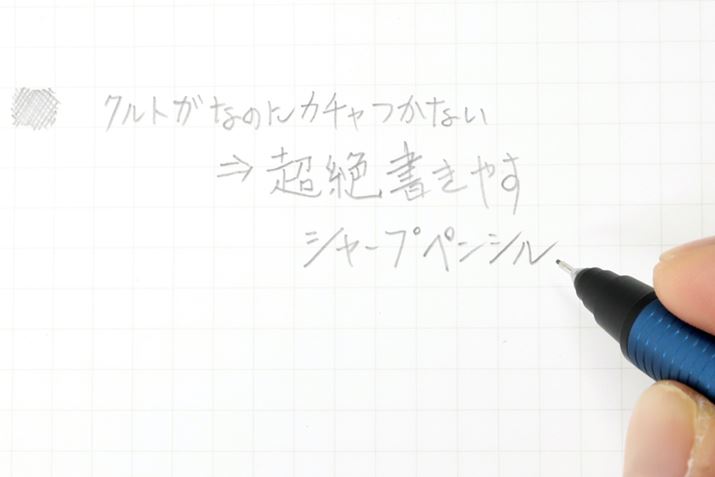 クルトガなのにカチャつかない
⇒超絶書きやす
シャープペンシル